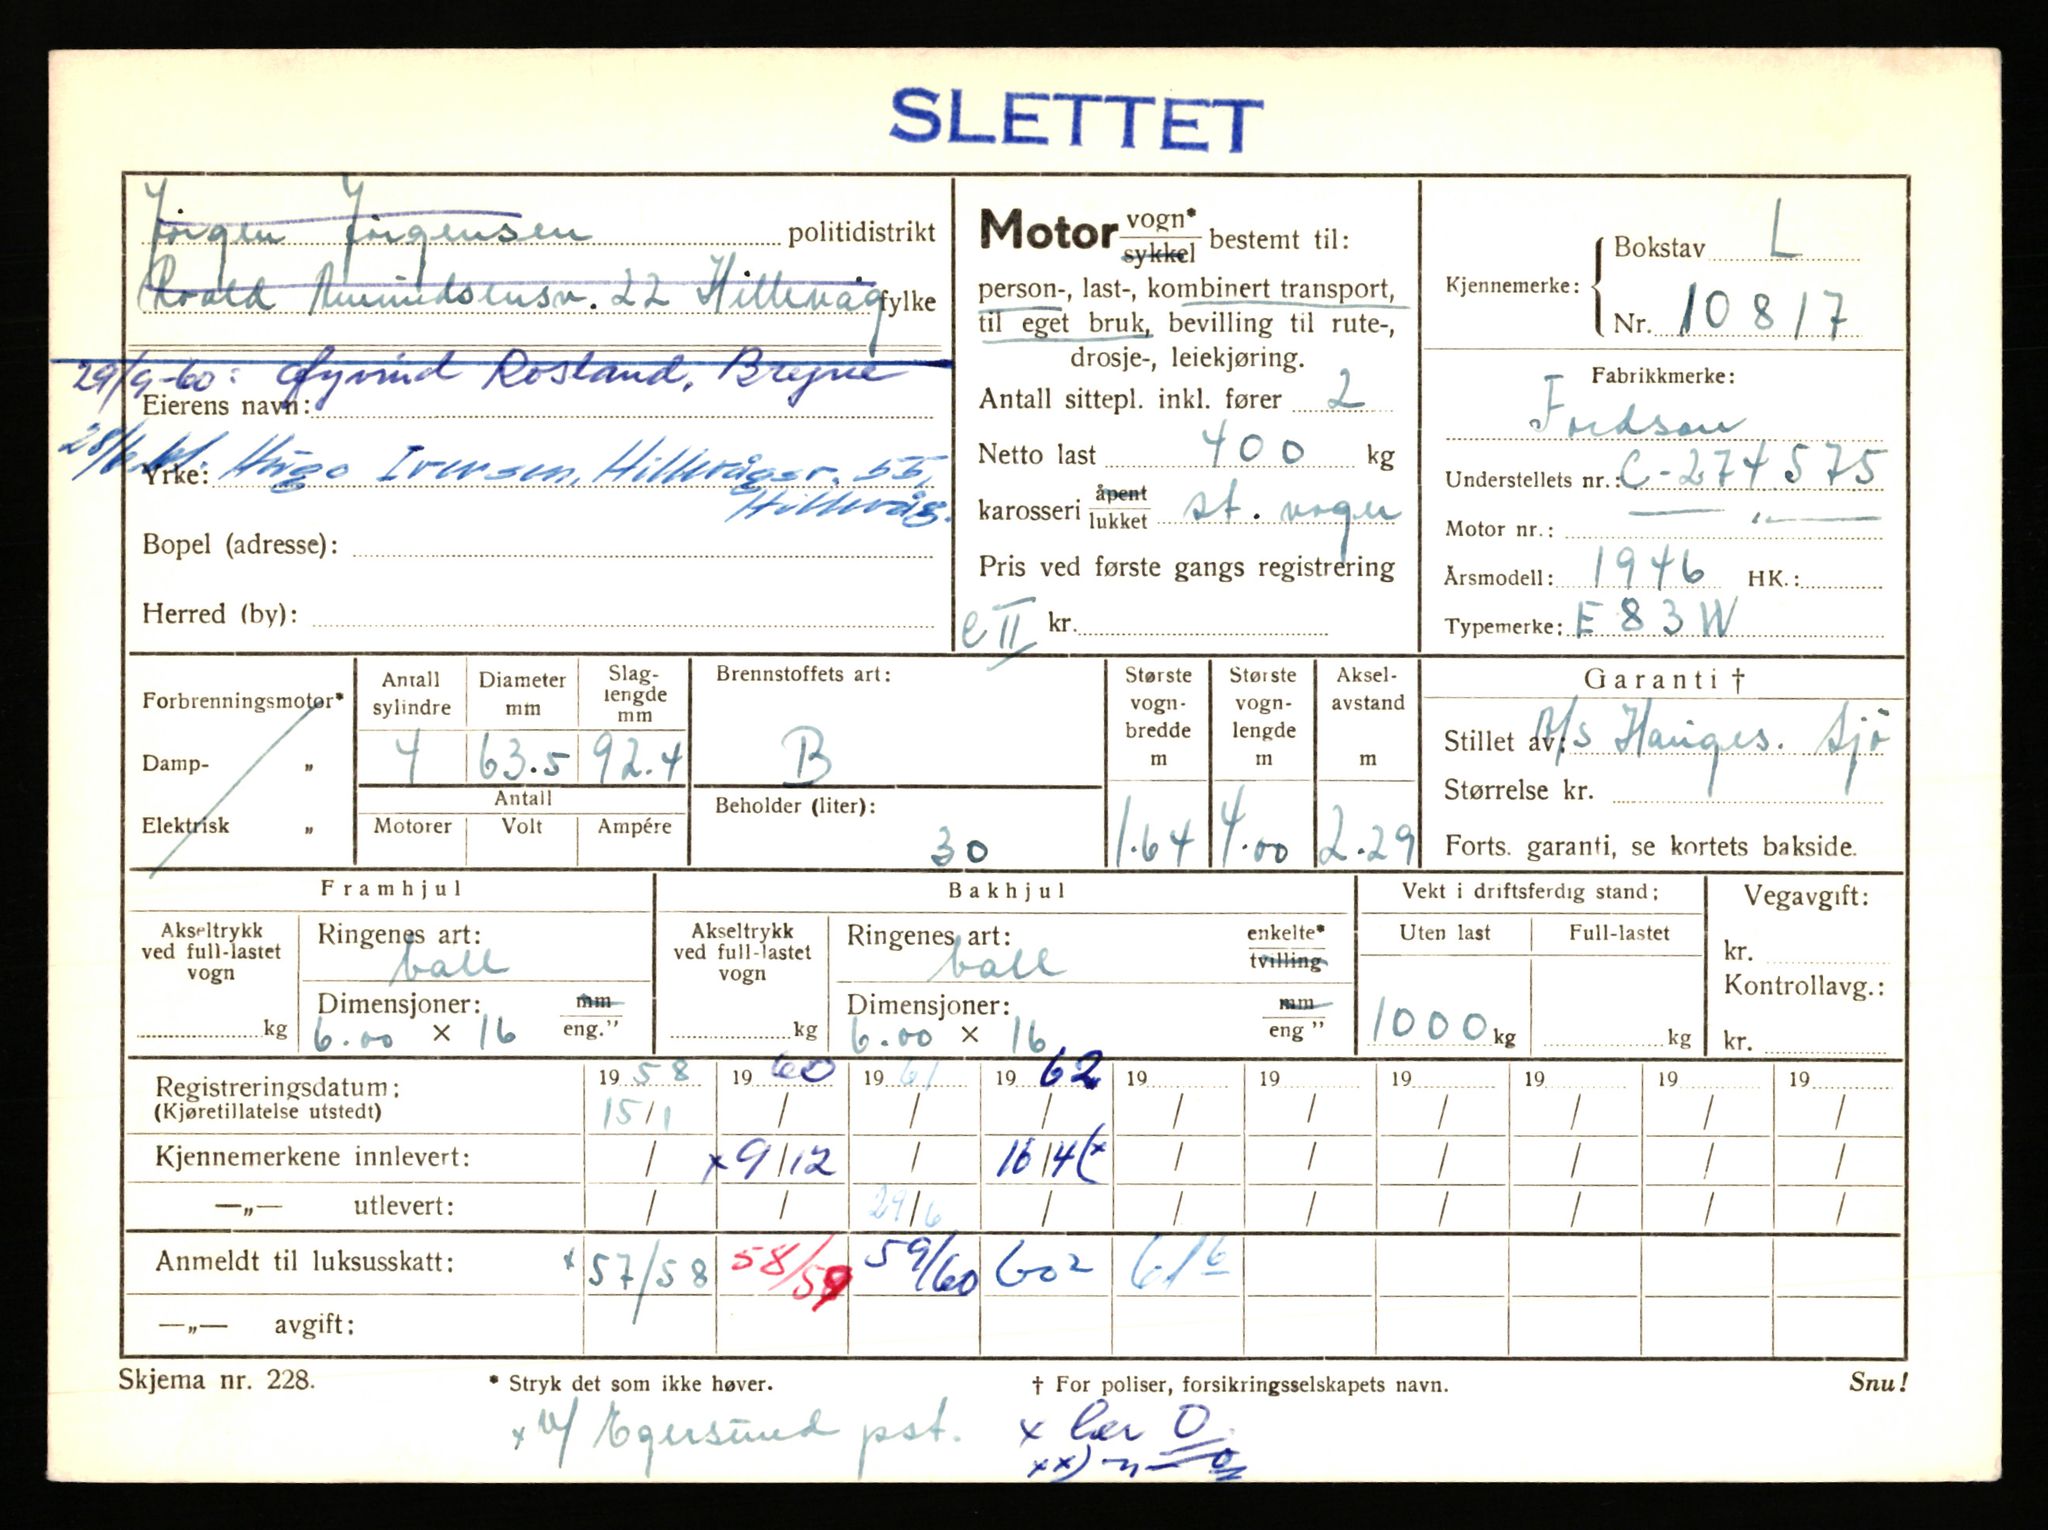 SLETTET
Jörgen Jörgensen politidistrikt
Roald Amundsensv. 22 Hillevåg fylke
29/9-60: Øyvind Rosland, Bryne
Eierens navn:
28/6 61. Hugo Iversen, Hillevågsv. 55,
Yrke: Hillevåg.
Bopel (adresse):
Herred (by):
Motor vogn* sykkel bestemt til:
person-, last-, kombinert transport,
til eget bruk, bevilling til rute-,
drosje-, leiekjøring.
Antall sittepl. inkl. fører 2
Netto last 400 kg
karosseri åpent lukket st. vogn
Pris ved første gangs registrering
e II kr.
Kjennemerke: Bokstav L
Nr. 10817
Fabrikkmerke:
Fordson
Understellets nr.: C-274575
Motor nr.: — „ —
Årsmodell: 1946 HK.:
Typemerke: E83W
Forbrenningsmotor*
Damp- „
Elektrisk „
Antall sylindre
4
Diameter mm
63.5
Slag-lengde mm
92.4
Antall
Motorer Volt Ampére
Brennstoffets art:
B
Beholder (liter):
30
Største vogn-bredde m
1.64
Største vogn-lengde m
4.00
Aksel-avstand m
2.29
Garanti †
Stillet av: A/S Hauges. Sjö
Størrelse kr.
Forts. garanti, se kortets bakside.
Framhjul
Akseltrykk ved full-lastet vogn
kg
Ringenes art:
ball
Dimensjoner: mm
6.00 × 16 eng.”
Bakhjul
Akseltrykk ved full-lastet vogn
kg
Ringenes art: enkelte*
ball tvilling
Dimensjoner: mm
6.00 × 16 eng ”
Vekt i driftsferdig stand;
Uten last Full-lastet
1000 kg kg
Vegavgift:
kr.
Kontrollavg.:
kr.
Registreringsdatum; 1958 1960 1961 1962 19 19 19 19 19 19
(Kjøretillatelse utstedt) 15/1 / / / / / / / / /
Kjennemerkene innlevert: / x 9/12 / 16/4 (x / / / / / /
—„— utlevert: / / 29/6 / / / / / / /
Anmeldt til luksusskatt: x 57/58 58/59 59/60 60² 61 6
—„— avgift:
Skjema nr. 228. * Stryk det som ikke høver. † For poliser, forsikringsselskapets navn. Snu!
x v/ Egersund pst. x lær O.
xx) —„— O